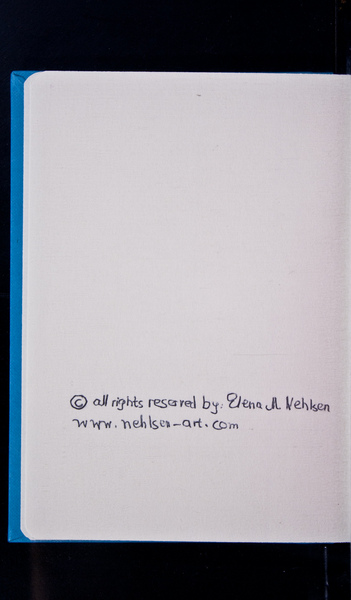 © all rights reserved by: Elena M Nehlsen
www.nehlsen-art.com